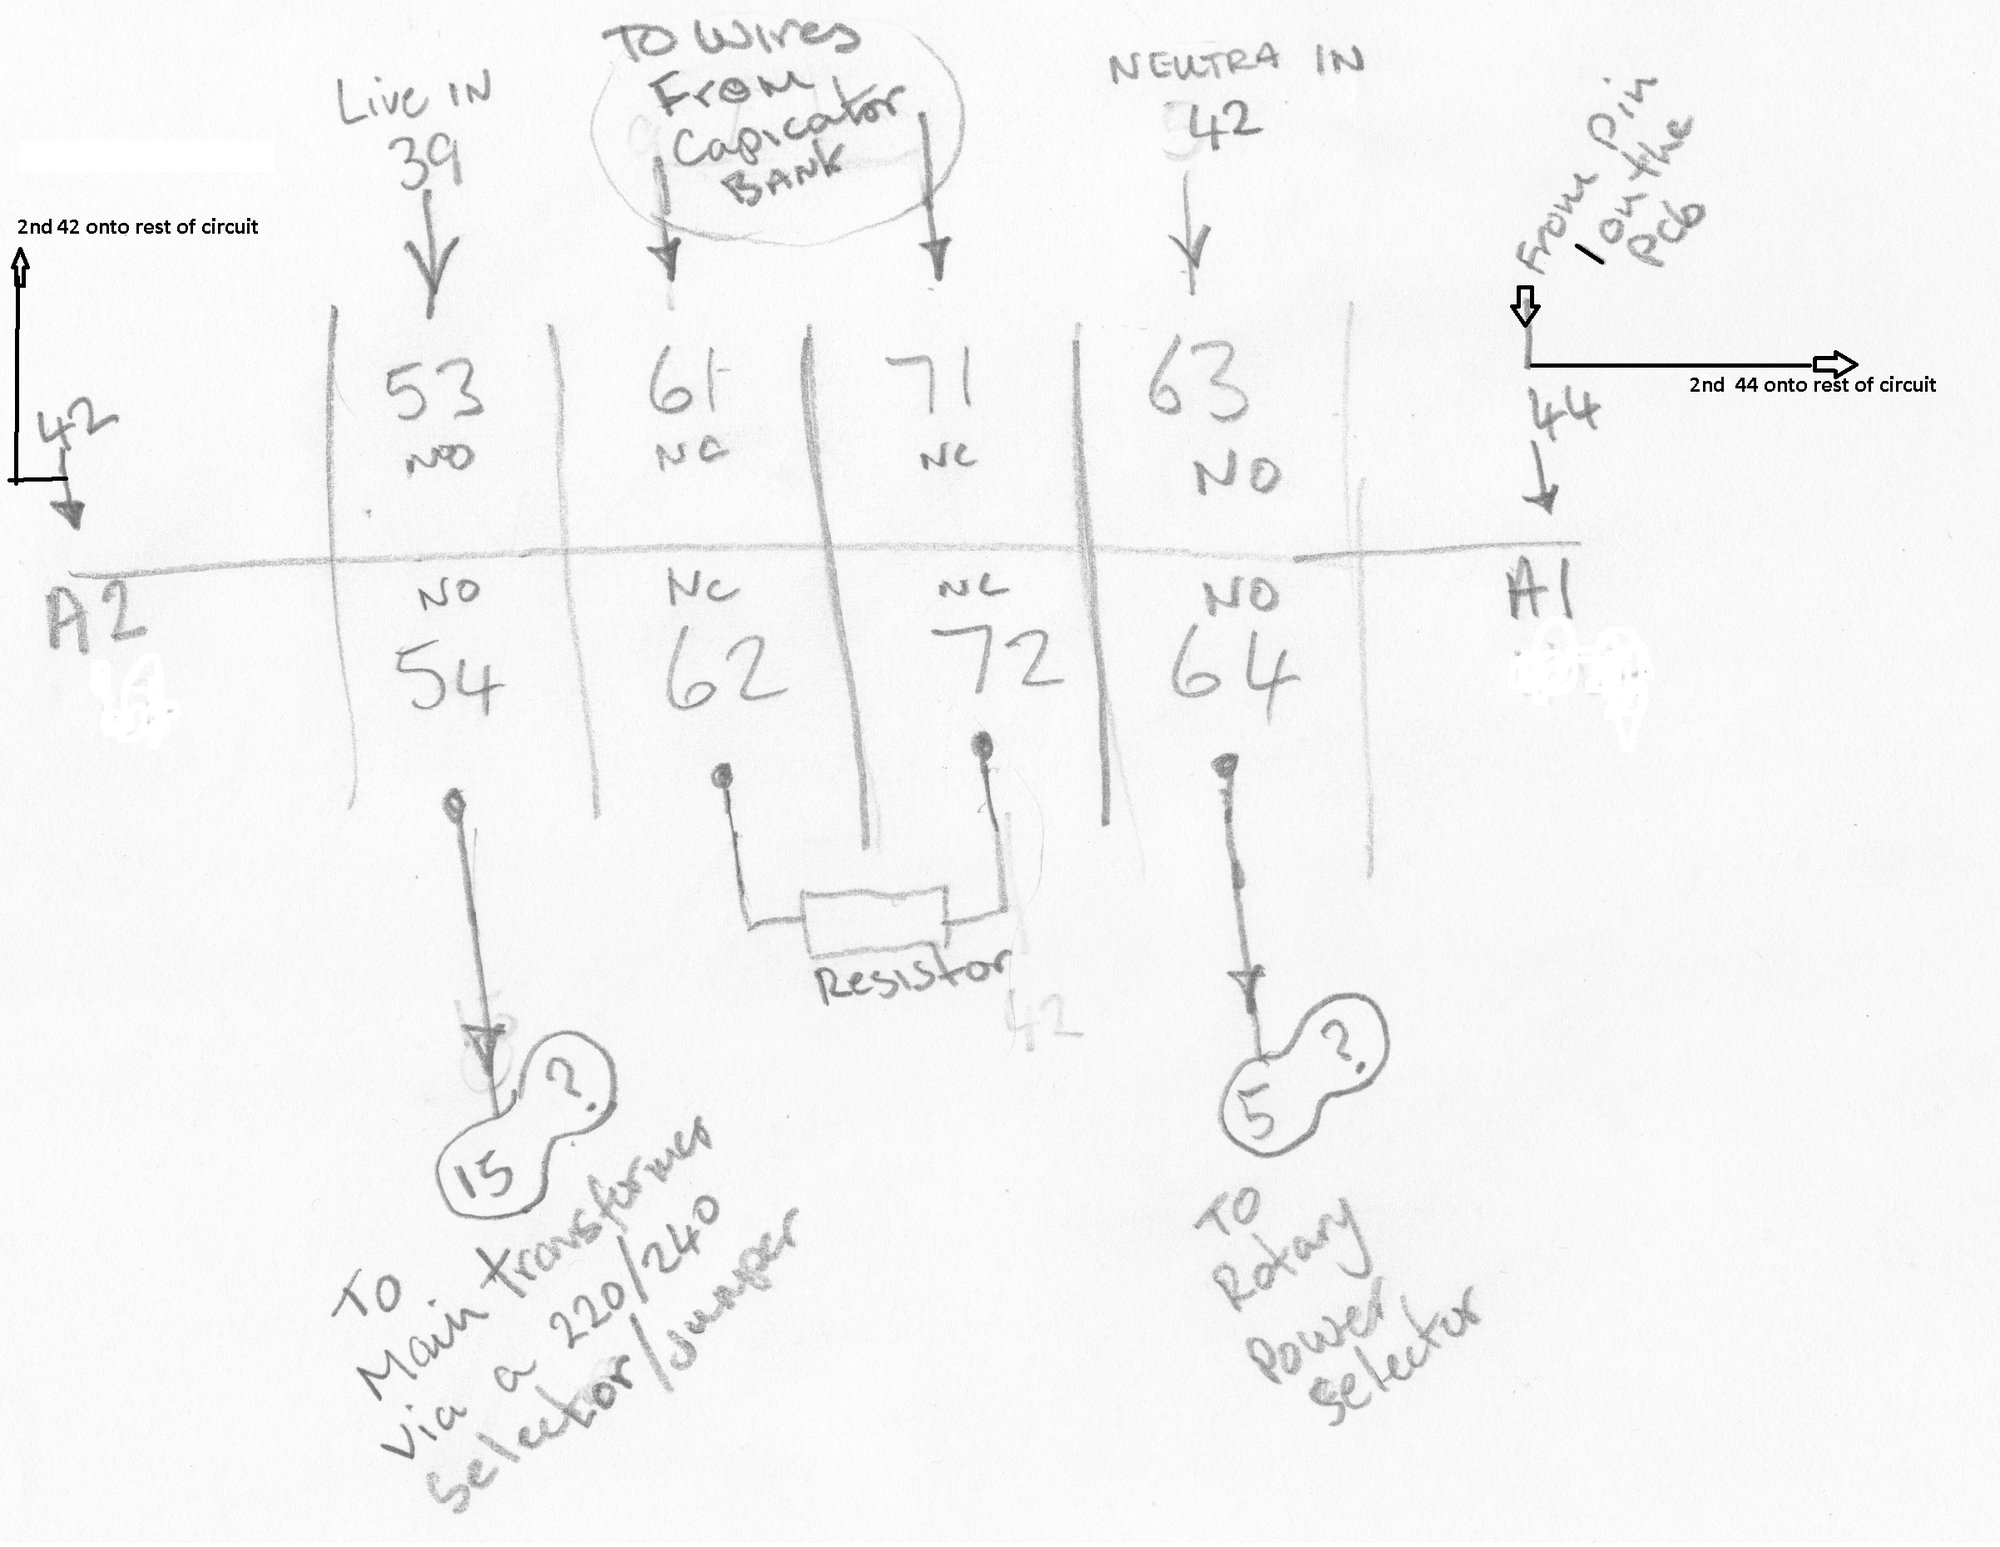 Live IN
39
To Wires
From
Capicator
BANK
NEUTRA IN
42
From Pin
1 on the
PCb
2nd 42 onto rest of circuit
42
2nd 44 onto rest of circuit
44
53
61
71
63
NO
NC
NC
NO
A2
NO
NC
NC
NO
A1
54
62
72
64
Resistor
42
?
15
?
5
TO
Main transformer
via a 220/240
Selector/Jumper
TO
Rotary
Power
Selector